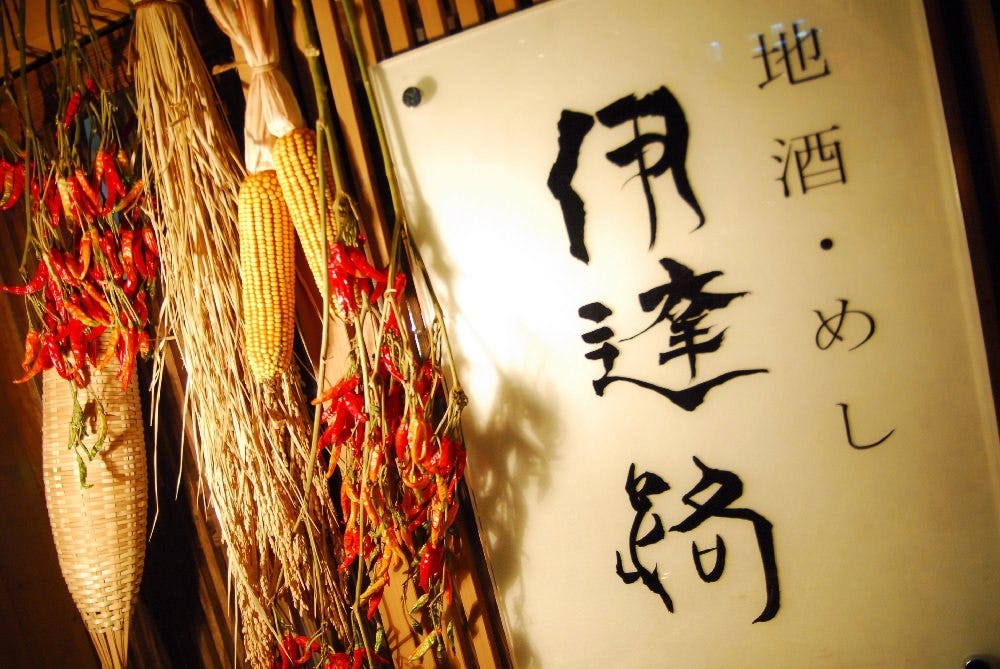 地酒・めし
伊達路